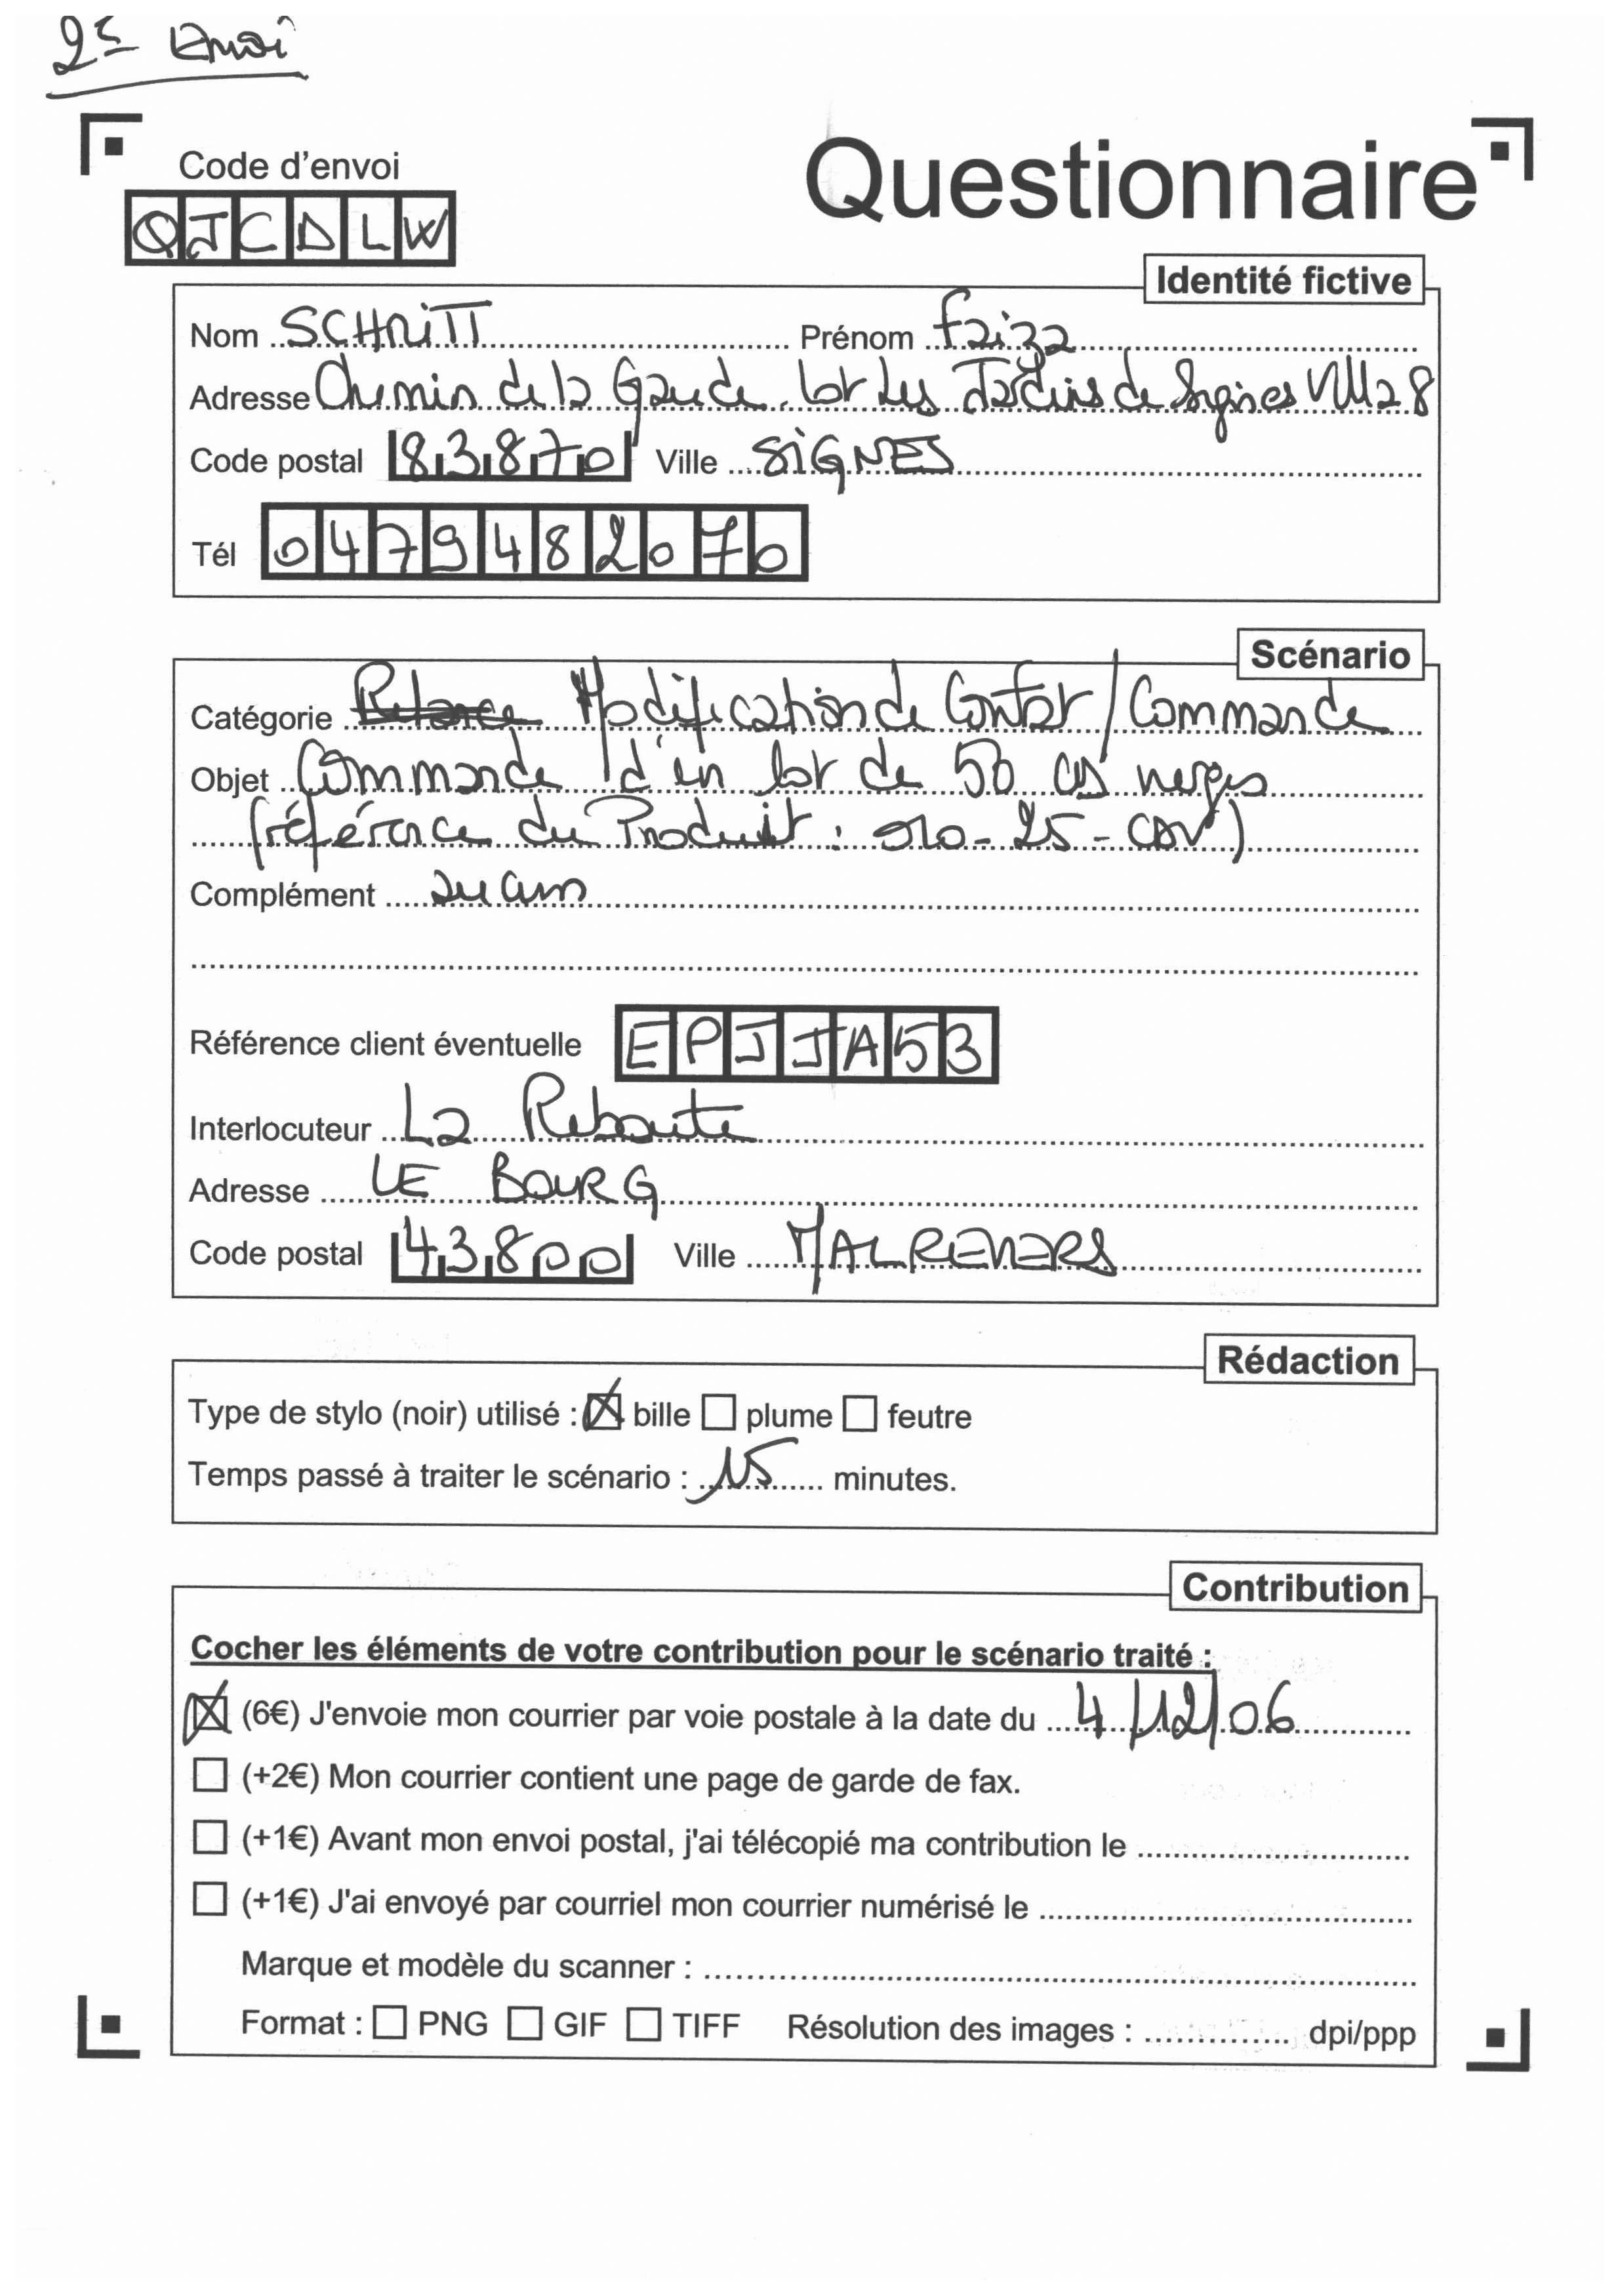 2è Envoi
Code d'envoi
Questionnaire
QJCDLW
Identité fictive
Nom SCHMITT Prénom Faiza
Adresse Chemin de la Gaude. lot Les Jardins de Signes Villa 8
Code postal 83870 Ville SIGNES
Tél 0479482070
Scénario
Catégorie Relance Modification de Contrat / Commande
Objet Commande d'un lot de 50 CD
(référence du Produit : 010-25-CDV)
Complément aucun
Référence client éventuelle EPJJA53
Interlocuteur La Reboute
Adresse LE BOURG
Code postal 43800 Ville MALREVERS
Rédaction
Type de stylo (noir) utilisé : bille plume feutre
Temps passé à traiter le scénario : 15 minutes.
Contribution
Cocher les éléments de votre contribution pour le scénario traité :
(6€) J'envoie mon courrier par voie postale à la date du 4/12/06
(+2€) Mon courrier contient une page de garde de fax.
(+1€) Avant mon envoi postal, j'ai télécopié ma contribution le
(+1€) J'ai envoyé par courriel mon courrier numérisé le
Marque et modèle du scanner :
Format : PNG GIF TIFF Résolution des images : dpi/ppp